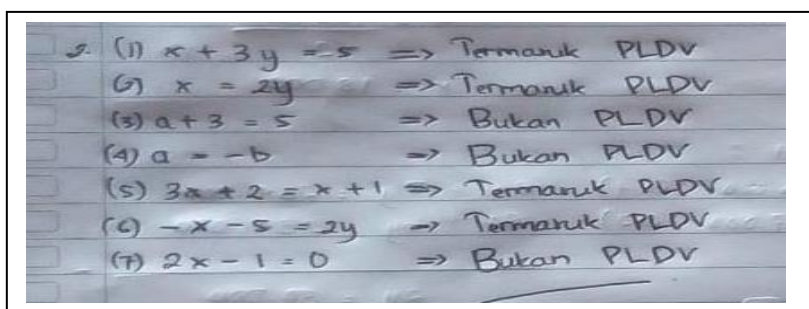 2. (1) x + 3y = -5 => Termasuk PLDV
(2) x = 2y => Termasuk PLDV
(3) a + 3 = 5 => Bukan PLDV
(4) a = -b => Bukan PLDV
(5) 3x + 2 = x + 1 => Termasuk PLDV
(6) -x - 5 = 2y => Termasuk PLDV
(7) 2x - 1 = 0 => Bukan PLDV